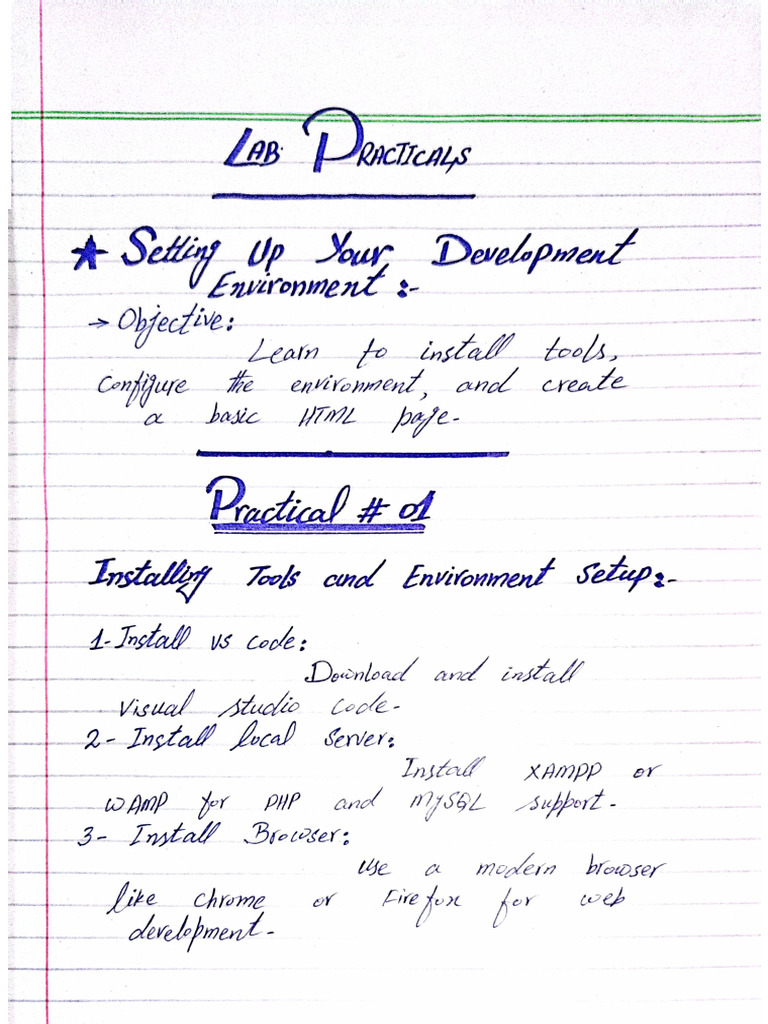 LAB PRACTICALS
★ Setting Up Your Development
Environment :-
→ Objective:
Learn to install tools,
configure the environment, and create
a basic HTML page-
Practical # 01
Installing Tools and Environment Setup:-
1- Install vs code:
Download and install
Visual studio code-
2- Install local server:
Install XAMPP or
WAMP for PHP and MySQL support-
3- Install Browser:
use a modern browser
like chrome or Firefox for web
development-